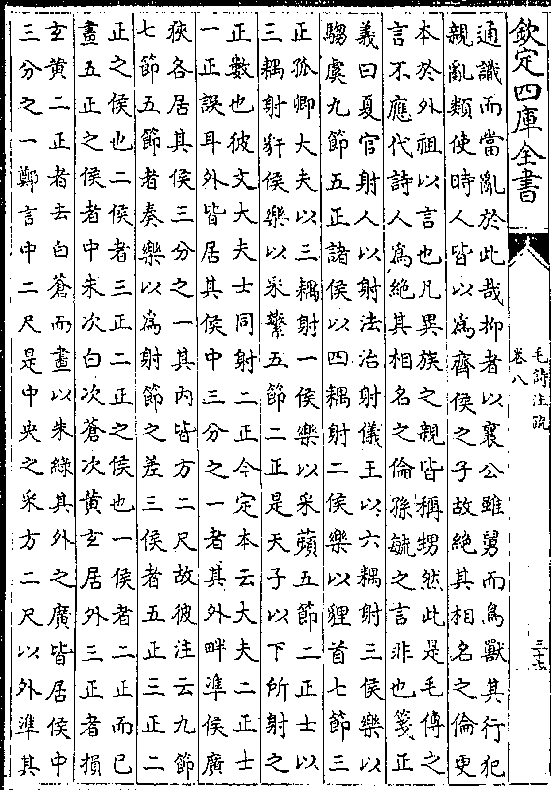 欽定四庫全書
毛詩注疏
卷八
通識而當亂於此哉抑者以襄公雖舅而鳥獸其行犯
親亂類使時人皆以為齊侯之子故絶其相名之倫更
本於外祖以言也凡異族之親皆稱甥然此是毛傳之
言不應代詩人為絶其相名之倫孫毓之言非也箋正
義曰夏官射人以射法治射儀王以六耦射三侯樂以
騶虞九節五正諸侯以四耦射二侯樂以貍首七節三
正孤卿大夫以三耦射一侯樂以采蘋五節二正士以
三耦射豻侯樂以采蘩五節二正是天子以下所射之
正數也彼文大夫士同射二正今定本云大夫二正士
一正誤耳外皆居其侯中三分之一者其外畔準侯廣
狹各居其侯三分之一其内皆方二尺故彼注云九節
七節五節者奏樂以為射節之差三侯者五正三正二
正之侯也二侯者三正二正之侯也一侯者二正而已
畫五正之侯者中朱次白次蒼次黄玄居外三正者損
玄黄二正者去白蒼而畫以朱緑其外之廣皆居侯中
三分之一鄭言中二尺是中央之采方二尺以外準其